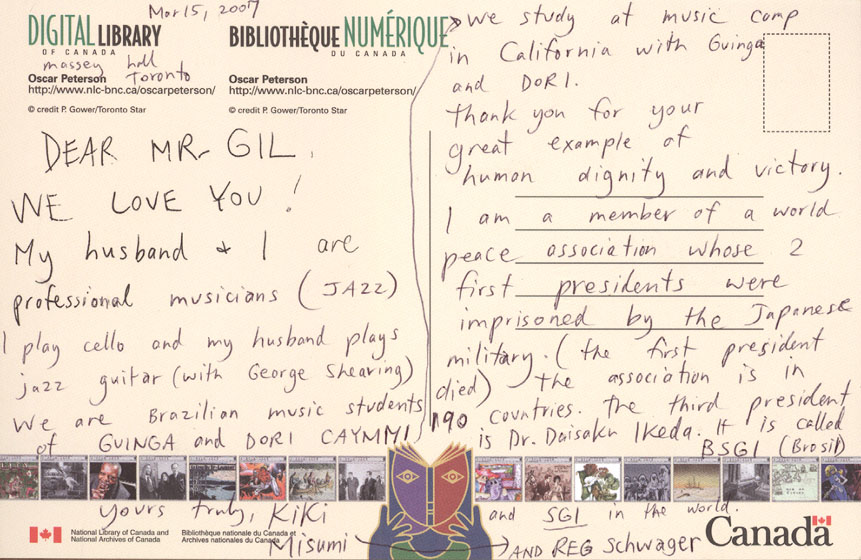 Mar 15, 2007
DIGITAL LIBRARY
OF CANADA
massey hall
Toronto
Oscar Peterson
http://www.nlc-bnc.ca/oscarpeterson/
© credit P. Gower/Toronto Star
BIBLIOTHÈQUE NUMÉRIQUE
DU CANADA
Oscar Peterson
http://www.nlc-bnc.ca/oscarpeterson/
© credit P. Gower/Toronto Star
DEAR MR. GIL,
WE LOVE YOU!
My husband & I are
professional musicians (JAZZ)
I play cello and my husband plays
jazz guitar (with George Shearing)
We are Brazilian music students
of GUINGA and DORI CAYMMI
we study at music camp
in California with Guinga
and DORI.
Thank you for your
great example of
human dignity and victory.
I am a member of a world
peace association whose 2
first presidents were
imprisoned by the Japanese
military. (the first president
died) The association is in
190 countries. The third president
is Dr. Daisaku Ikeda. It is called
BSGI (Brasil)
and SGI in the world.
yours truly, KiKi
Misumi
AND REG Schwager
National Library of Canada and
National Archives of Canada
Bibliothèque nationale du Canada et
Archives nationales du Canada
Canada